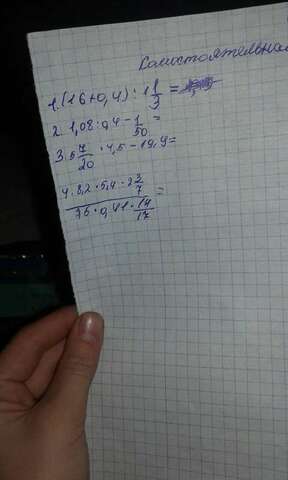 Самостоятельная
1. (16+0,4) : 1 1/3 =
2. 1,08 : 0,4 - 1/50 =
3. 5 7/20 * 4,5 - 19,9 =
4. 8,2 * 5,4 : 2 3/7 =
76 * 0,41 * 14/17